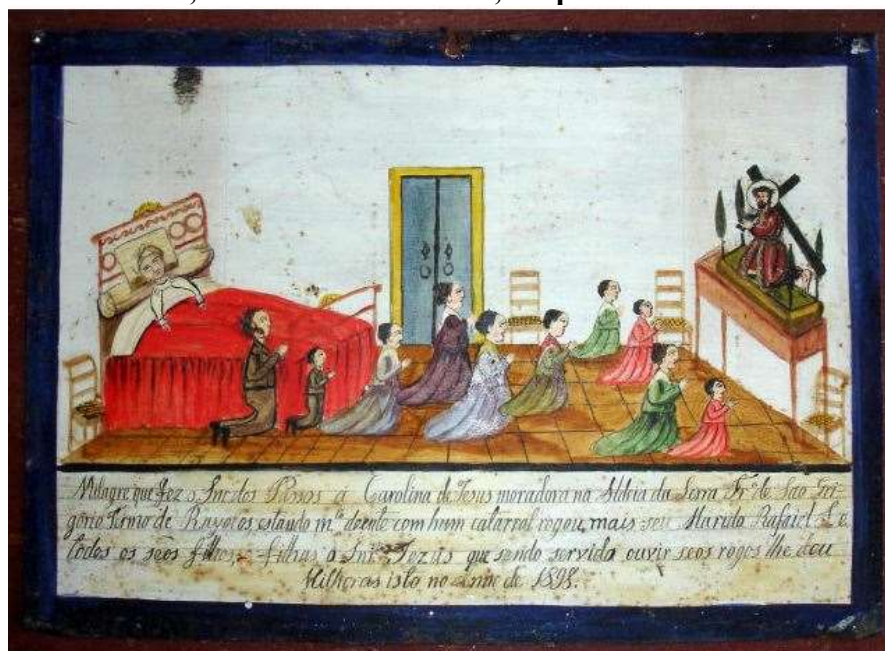 Milagre que fez o Snr. dos Passos a Carolina de Jesus moradora na Aldeia da Serra Fr.ª de São Gri-
gorio Termo de Rayolos estando m.ᵗᵒ doente com hum catarral rogou, mais seu Marido Rafaiel e
todos os seos filhos, e filhas o Snr. Jezus que sendo servido ouvir seos rogos lhe deu
Milhoras isto no anno de 1898.